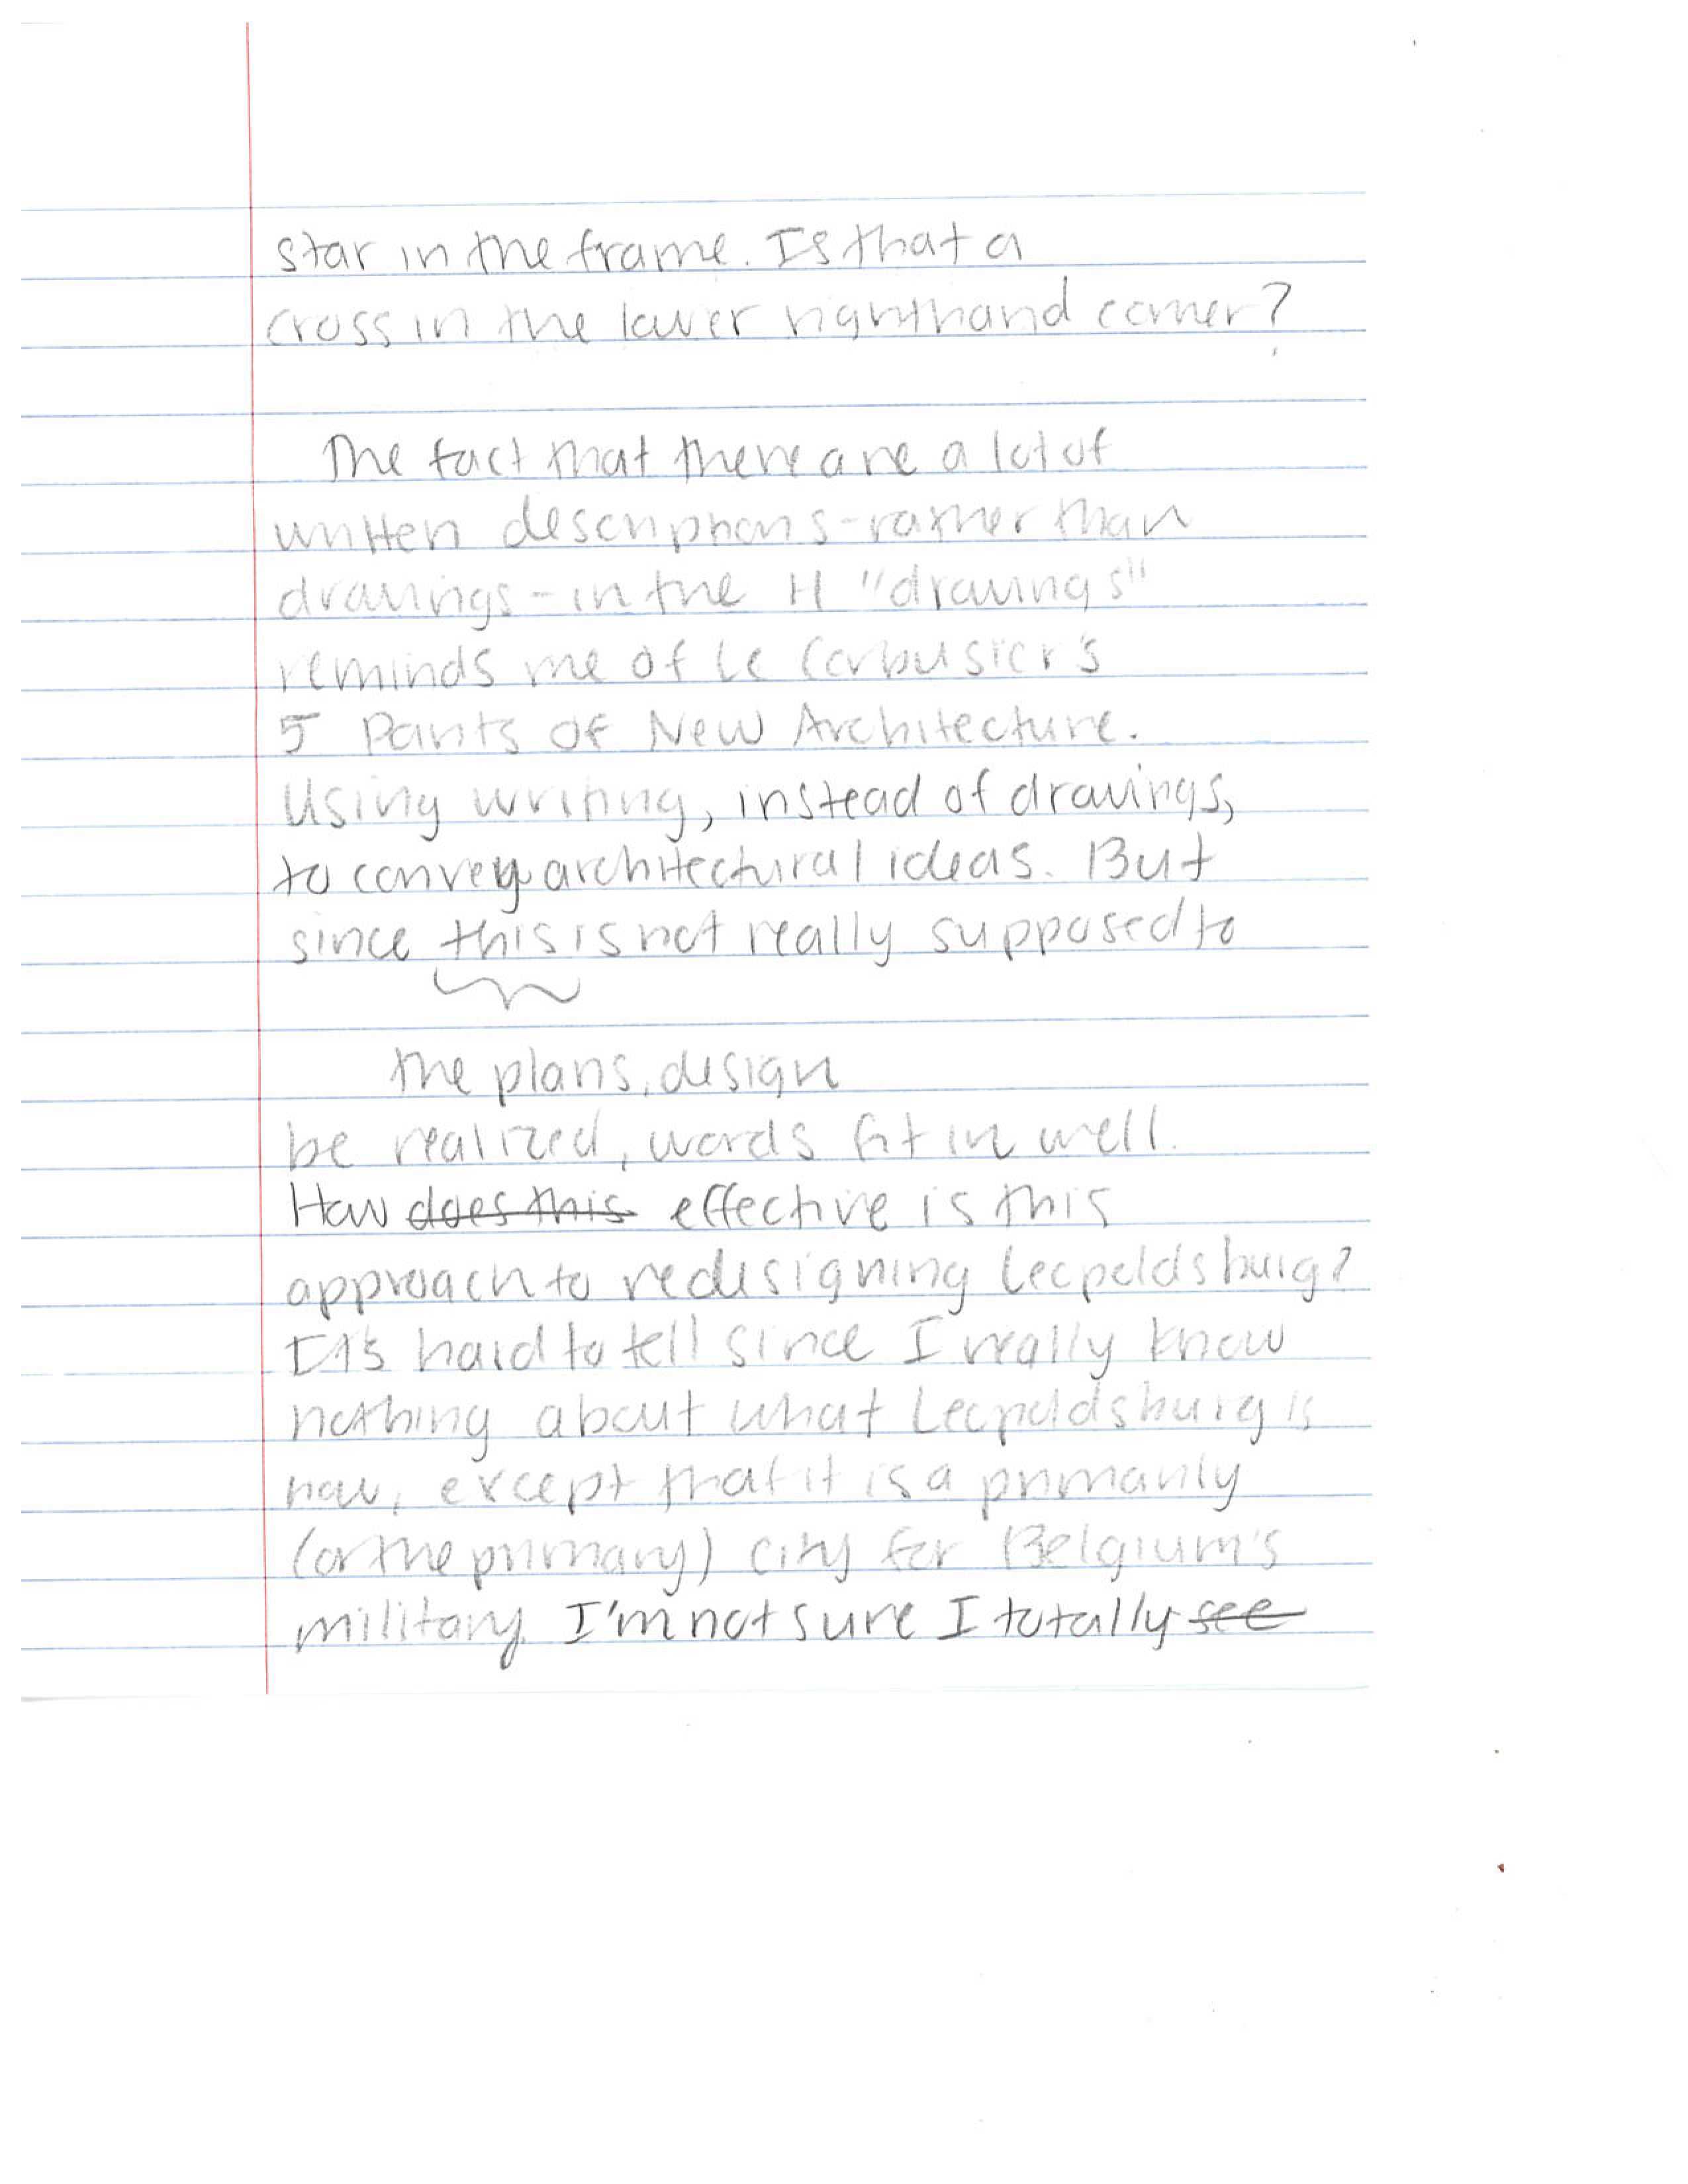 star in the frame. Is that a
cross in the lower righthand corner?
The fact that there are a lot of
written descriptions - rather than
drawings - in the H "drawings"
reminds me of Le Corbusier's
5 Points of New Architecture.
Using writing, instead of drawings,
to convey architectural ideas. But
since this is not really supposed to
the plans, design
be realized, words fit in well.
How does this effective is this
approach to redesigning Leopoldsburg?
It's hard to tell since I really know
nothing about what Leopoldsburg is
now, except that it is a primarily
(or the primary) city for Belgium's
military. I'm not sure I totally see